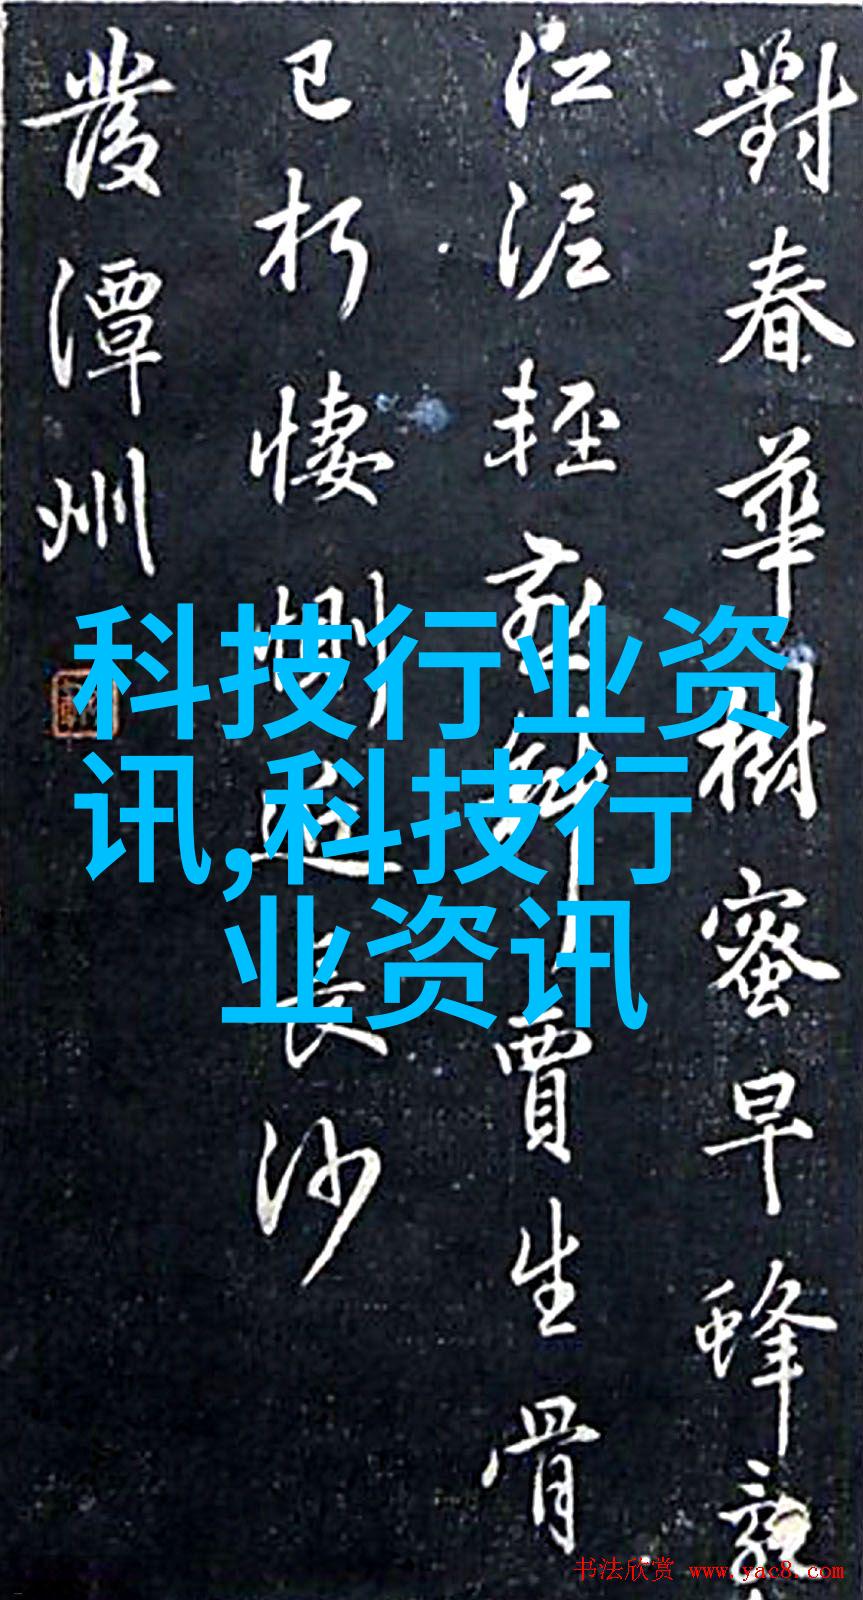 對春華樹蜜早蜂亂
江泥輕燕斜賈生骨
已朽悽惻近長沙
發潭州
科技行业资
讯,科技行
业资讯
书法欣赏 www.yac8.com